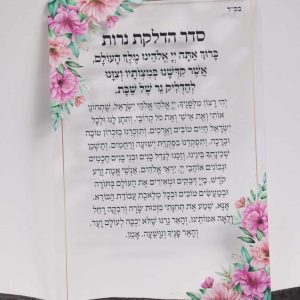 בס"ד
סדר הדלקת נרות
בָּרוּךְ אַתָּה יְיָ אֱלֹהֵינוּ מֶלֶךְ הָעוֹלָם,
אֲשֶׁר קִדְּשָׁנוּ בְּמִצְוֹתָיו וְצִוָּנוּ
לְהַדְלִיק נֵר שֶׁל שַׁבָּת.
יְהִי רָצוֹן מִלְּפָנֶיךָ, יְיָ אֱלֹהַי וֵאלֹהֵי יִשְׂרָאֵל, שֶׁתְּחוֹנֵן
אוֹתִי וְאֶת אִישִׁי וְאֶת כָּל קְרוֹבַי, וְתִתֵּן לָנוּ וּלְכָל
יִשְׂרָאֵל חַיִּים טוֹבִים וַאֲרֻכִּים, וְתִזְכְּרֵנוּ בְּזִכְרוֹן טוֹבָה
וּבְרָכָה, וְתִפְקְדֵנוּ בִּפְקֻדַּת יְשׁוּעָה וְרַחֲמִים, וְתַשְׁכֵּן
שְׁכִינָתְךָ בֵּינֵינוּ, וְזַכֵּנוּ לְגַדֵּל בָּנִים וּבְנֵי בָנִים חֲכָמִים
וּנְבוֹנִים אוֹהֲבֵי יְיָ, יִרְאֵי אֱלֹהִים, אַנְשֵׁי אֱמֶת זֶרַע
קֹדֶשׁ, בַּייָ דְּבֵקִים וּמְאִירִים אֶת הָעוֹלָם בַּתּוֹרָה
וּבְמַעֲשִׂים טוֹבִים וּבְכָל מְלֶאכֶת עֲבוֹדַת הַבּוֹרֵא.
אָנָּא, שְׁמַע אֶת תְּחִנָּתִי בִּזְכוּת שָׂרָה וְרִבְקָה רָחֵל
וְלֵאָה אִמּוֹתֵינוּ, וְהָאֵר נֵרֵנוּ שֶׁלֹּא יִכְבֶּה לְעוֹלָם וָעֶד,
וְהָאֵר פָּנֶיךָ וְנִוָּשֵׁעָה. אָמֵן.